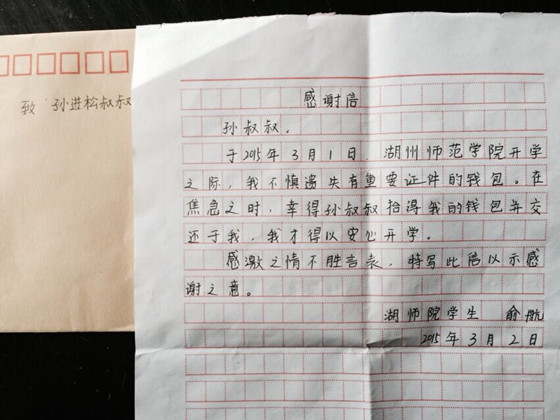 致 孙进松叔叔
感谢信
孙叔叔,
于2015年3月1日,湖州师范学院开学
之际,我不慎遗失有重要证件的钱包。在
焦急之时,幸得孙叔叔拾得我的钱包并交
还于我,我才得以安心开学。
感激之情不胜言表,特写此信以示感
谢之意。
湖师院学生 俞航
2015年3月2日